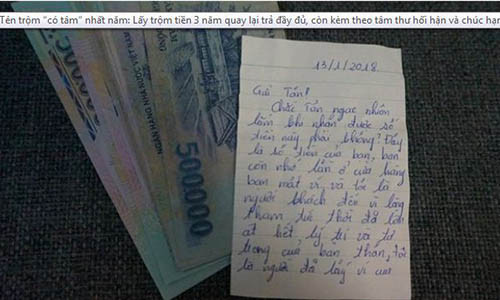 Tên trộm "có tâm" nhất năm: Lấy trộm tiền 3 năm quay lại trả đầy đủ, còn kèm theo tâm thư hối hận và chúc
500000
13/1/2018.
Gửi Tấn!
Chắc Tấn ngạc nhiên
lắm khi nhận được số
tiền này phải không? Đây
là số tiền của bạn, bạn
còn nhớ lần ở cửa hàng
bạn mất ví, và tôi là
người khách đến vì lòng
tham tức thời đã lấn
át hết lý trí và tự
trọng của bản thân, tôi
là người đã lấy ví của